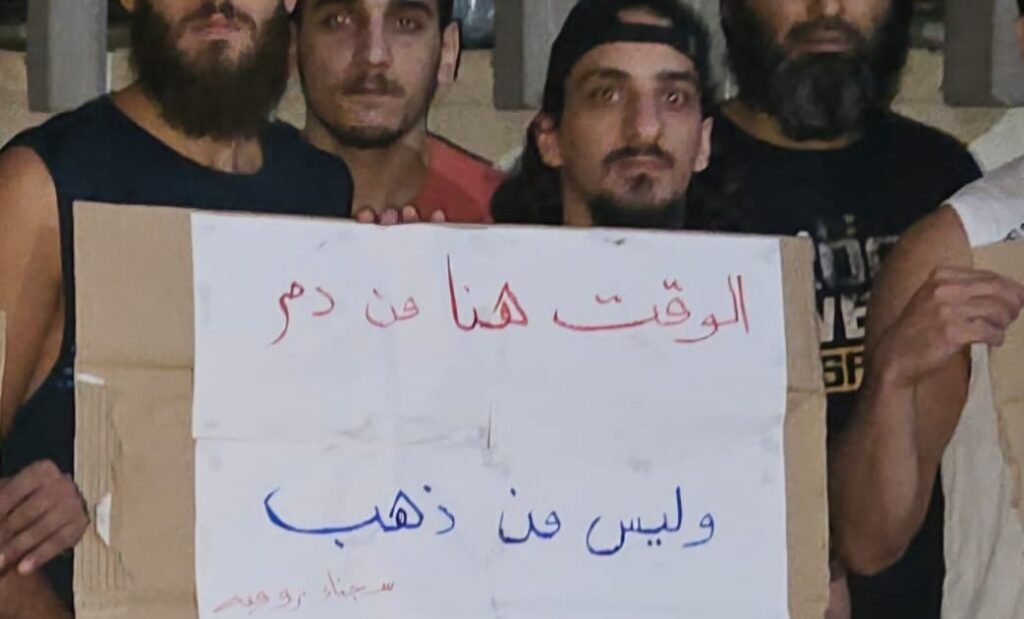 الوقت هنا من دم
وليس من ذهب
سجناء روميه